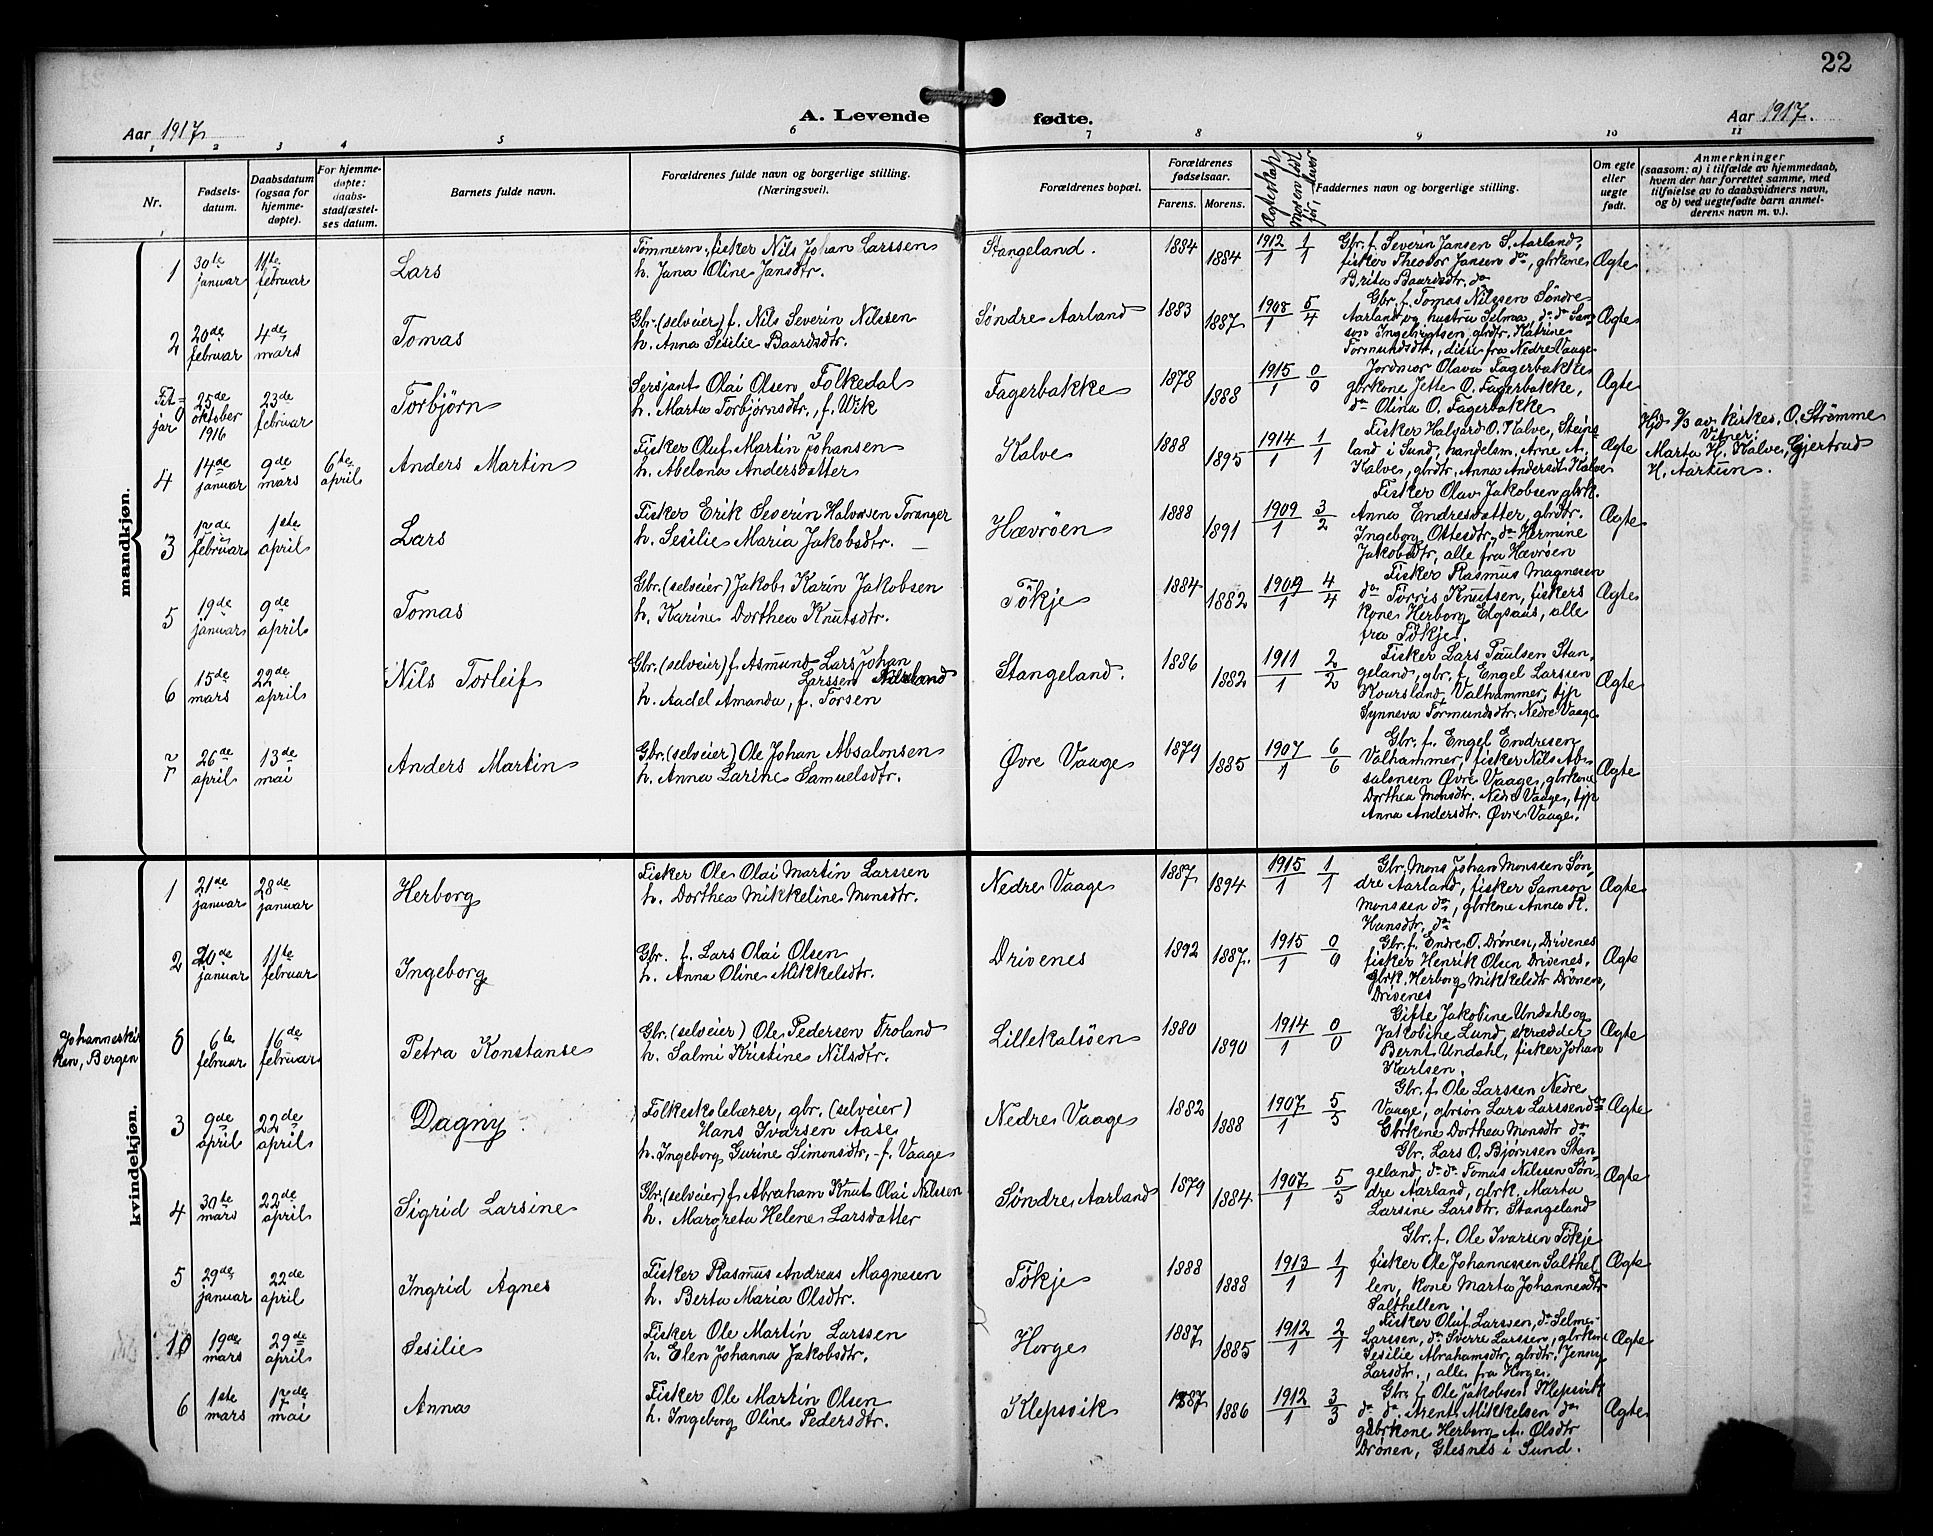 22
A. Levende fødte.
Aar 1917
Aar 1917.
1 2 3 4 5 6 7 8 9 10 11
Nr.
Fødsels-
datum.
Daabsdatum
(ogsaa for
hjemme-
døpte).
For hjemme-
døpte:
daabs-
stadfæstel-
ses datum.
Barnets fulde navn.
Forældrenes fulde navn og borgerlige stilling.
(Næringsvei).
Forældrenes bopæl.
Forældrenes
fødselsaar.
Farens. Morens.
Faddernes navn og borgerlige stilling.
Om egte
eller
uegte
født.
Anmerkninger
(saasom: a) i tilfælde av hjemmedaab,
hvem der har forrettet samme, med
tilføielse av to daabsvidners navn,
og b) ved uegtefødte barn anmel-
derens navn m. v.).
mandkjøn.
1
30te
januar
11te
februar
Lars
Tømmerm, fisker Nils Johan Larssen
h. Jana Oline Jansdtr.
Stangeland.
1884
1884
1912 1
1 1
Gbr. f. Severin Jansen S. Aarland,
fisker Theodor Jansen do, gbrkone
Brita Baardsdtr. do
Ægte
2
20de
februar
4de
mars
Tomas
Gbr. (selveier) f. Nils Severin Nilssen
h. Anna Sesilie Baardsdtr.
Søndre Aarland
1883
1887
1908 5
1 4
Gbr. f. Tomas Nilssen Søndre
Aarland og hustru Selma do do Sam-
son Ingebrigtsen, gbrdtr. Katrine
Tormundsdtr., disse fra Nedre Vaage
Ægte
Fit-
jar
25de
oktober
1916
23de
februar
Torbjørn
Sersjant Olai Olsen Folkedal
h. Marta Torbjørnsdtr., f. Wik
Fagerbakke
1878
1888
1915 0
1 0
Jordmor Olava Fagerbakke
gbrkone Jette O. Fagerbakke,
do Olina O. Fagerbakke
Ægte
4
14de
januar
9de
mars
6te
april
Anders Martin
Fisker Oluf Martin Johansen
h. Abelana Andersdatter
Kalve
1888
1895
1914 1
1 1
Fisker Halgard O. Kalve, Steins-
land i Sund, handelsm. Arne A.
Kalve, gbrdtr. Anna Andersdt. Kalve
Ægte
Hjd 9/3 av kirkes. O. Strømme
Vitner:
Marta H. Kalve, Gjertrud
H. Aartun.
3
17de
februar
1ste
april
Lars
Fisker Erik Severin Halvorsen Toranger
h. Sesilie Maria Jakobsdtr.
Hævrøen
1888
1891
1909 3
1 2
Fisker Olav Jakobsen gbrk.
Anna Endresdatter, gbrdtr.
Ingeborg Ottesdtr, do Hermine
Jakobsdtr, alle fra Hævrøen
Ægte
5
19de
januar
9de
april
Tomas
Gbr. (selveier) Jakob Karin Jakobsen
h. Karine Dorthea Knutsdtr.
Tøkje
1884
1882
1909 4
1 4
Fisker Rasmus Magnesen
do Torris Knutsen, fiskers
kone Herborg Elgsaas, alle
fra Tøkje.
Ægte
6
15de
mars
22de
april
Nils Torleif
Gbr. (selveier) f. Asmund Lars Johan
Larssen
h. Aadel Amanda, f. Torsen
Stangeland.
1886
1882
1911 2
1 2
Fisker Lars Paulsen Stan-
geland, gbr. f. Engel Larssen
Koursland, Valhammer, tjp
Synneva Tormundsdtr. Nedre Vaage
Ægte
7
26de
april
13de
mai
Anders Martin
Gbr. (selveier) Ole Johan Absalonsen
h. Anna Larine Samuelsdtr.
Øvre Vaage
1879
1885
1907 6
1 6
Gbr. f. Engel Endresen
Valhammer, fisker Nils Ab-
salonsen Øvre Vaage, gbrkone
Dorthea Monsdtr. Nedre Vaage, tjp
Anna Andersdtr. Øvre Vaage.
Ægte
kvindekjøn.
1
21de
januar
28de
januar
Herborg
Fisker Ole Olai Martin Larssen
h. Dorthea Mikkeline Monsdtr.
Nedre Vaage
1887
1894
1915 1
1 1
Gbr. Mons Johan Monssen Søn-
dre Aarland, fisker Samson
Monssen do, gbrkone Anna K.
Hansdtr. do
Ægte
2
20de
januar
11te
februar
Ingeborg
Gbr. f. Lars Olai Olsen
h. Anna Oline Mikkelsdtr.
Drivenes
1892
1887.
1915 0
1 0
Gbr. f. Endre O. Drønen, Drivenes
fisker Henrik Olsen Drivenes,
gbrk. Herborg Mikkelsdtr Drønen,
Drivenes
Ægte
Johanneskir-
ken, Bergen
8
6te
februar
16de
februar
Petra Konstanse
Gbr. (selveier) Ole Pedersen Troland
h. Salmi Kristine Nilsdtr.
Lillekalsøen
1880
1890
1914 0
1 0
Gifte Jakobine Undahl og
Jakobine Lund, skrædder
Bernt Undahl, fisker Johan
Karlsen.
Ægte
3
9de
april
22de
april
Dagny
Folkeskolelærer, gbr. (selveier)
Hans Ivarsen Aase
h. Ingeborg Gurine Simonsdtr, - f. Vaage
Nedre Vaage
1882
1888
1907 5
1 5
Gbr. f. Ole Larssen Nedre
Vaage, gbrsøn Lars Larssen do
Gbrkone Dorthea Monsdtr do
Ægte
4
30te
mars
22de
april
Sigrid Larsine
Gbr. (selveier) f. Abraham Knut Olai Nilssen
h. Margreta Helene Larsdatter
Søndre Aarland
1879
1884
1907 5
1 5
Gbr. Lars O. Bjørnsen Stan-
geland, do do Tomas Nilssen Søn-
dre Aarland, gbrk. Marta
Larsine Larsdtr. Stangeland
Ægte
5
29de
januar
22de
april
Ingrid Agnes
Fisker Rasmus Andreas Magnesen
h. Berta Maria Olsdtr.
Tøkje
1888
1888
1913 1
1 1
Gbr. f. Ole Ivarsen Tøkje
fisker Ole Johannessen Salthel-
len, kone Marta Johannesdtr
Salthellen
Ægte
10
19de
mars
29de
april
Sesilie
Fisker Ole Martin Larssen
h. Elen Johanna Jakobsdtr.
Horge
1887
1885
1912 2
1 1
Fisker Oluf Larssen, do Selmer
Larssen, do Sverre Larssen, gbrkone
Sesilie Abrahamsdtr, gbrdtr. Jenny
Larsdtr., alle fra Horge.
Ægte
6
1ste
mars
17de
mai
Anna
Fisker Ole Martin Olsen
h. Ingeborg Oline Pedersdtr.
Klepsvik
1887
1886
1912 3
1 3
Gbr. f. Ole Jakobsen Klepsvik
do do Arent Mikkelsen do
gbrkone Herborg A. Olsdtr
Drønen, Glesnes i Sund.
Ægte